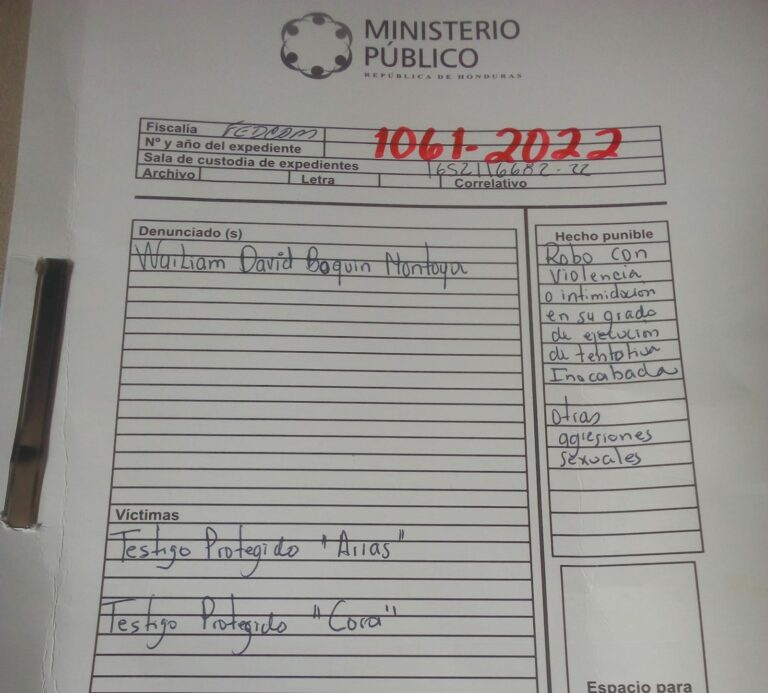 MINISTERIO
PÚBLICO
REPÚBLICA DE HONDURAS
Fiscalía FEDCOM
Nº y año del expediente 1061-2022
Sala de custodia de expedientes 1652116682-22
Archivo Letra Correlativo
Denunciado (s)
Wuiliam David Boquin Montoya
Hecho punible
Robo con
violencia
o intimidacion
en su grado
de ejecucion
de tentativa
Inacabada
otras
agresiones
sexuales
Víctimas
Testigo Protegido "Arias"
Testigo Protegido "Cora"
Espacio para